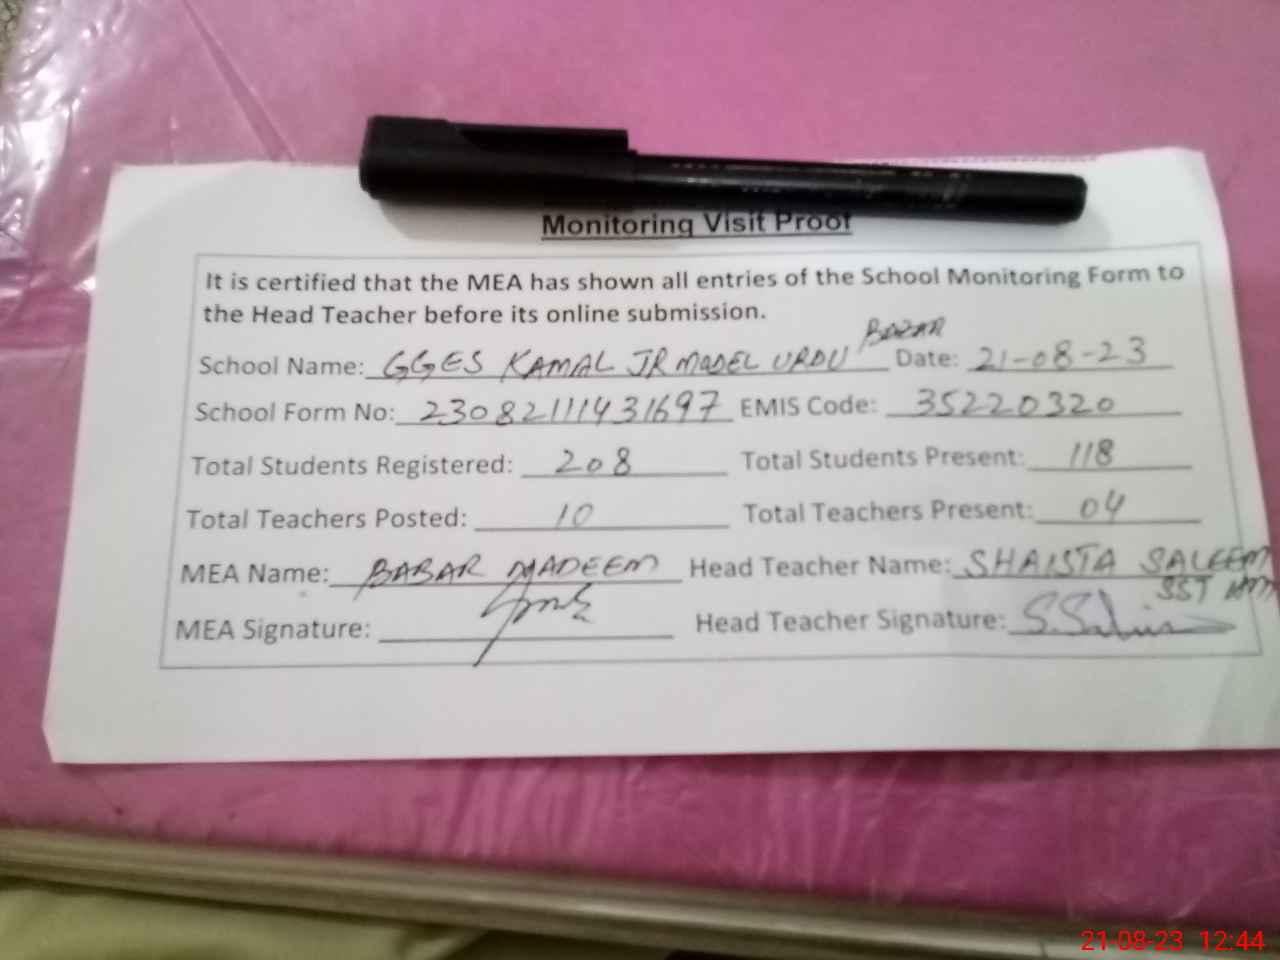 Monitoring Visit Proof
It is certified that the MEA has shown all entries of the School Monitoring Form to
the Head Teacher before its online submission.
School Name: GGES KAMAL JR MODEL URDU BAZAR Date: 21-08-23
School Form No: 230821111431697 EMIS Code: 35220320
Total Students Registered: 208 Total Students Present: 118
Total Teachers Posted: 10 Total Teachers Present: 04
MEA Name: BABAR NADEEM Head Teacher Name: SHAISTA SALEEM
SST
MEA Signature: Head Teacher Signature: S.Saleem
21-08-23 12:44